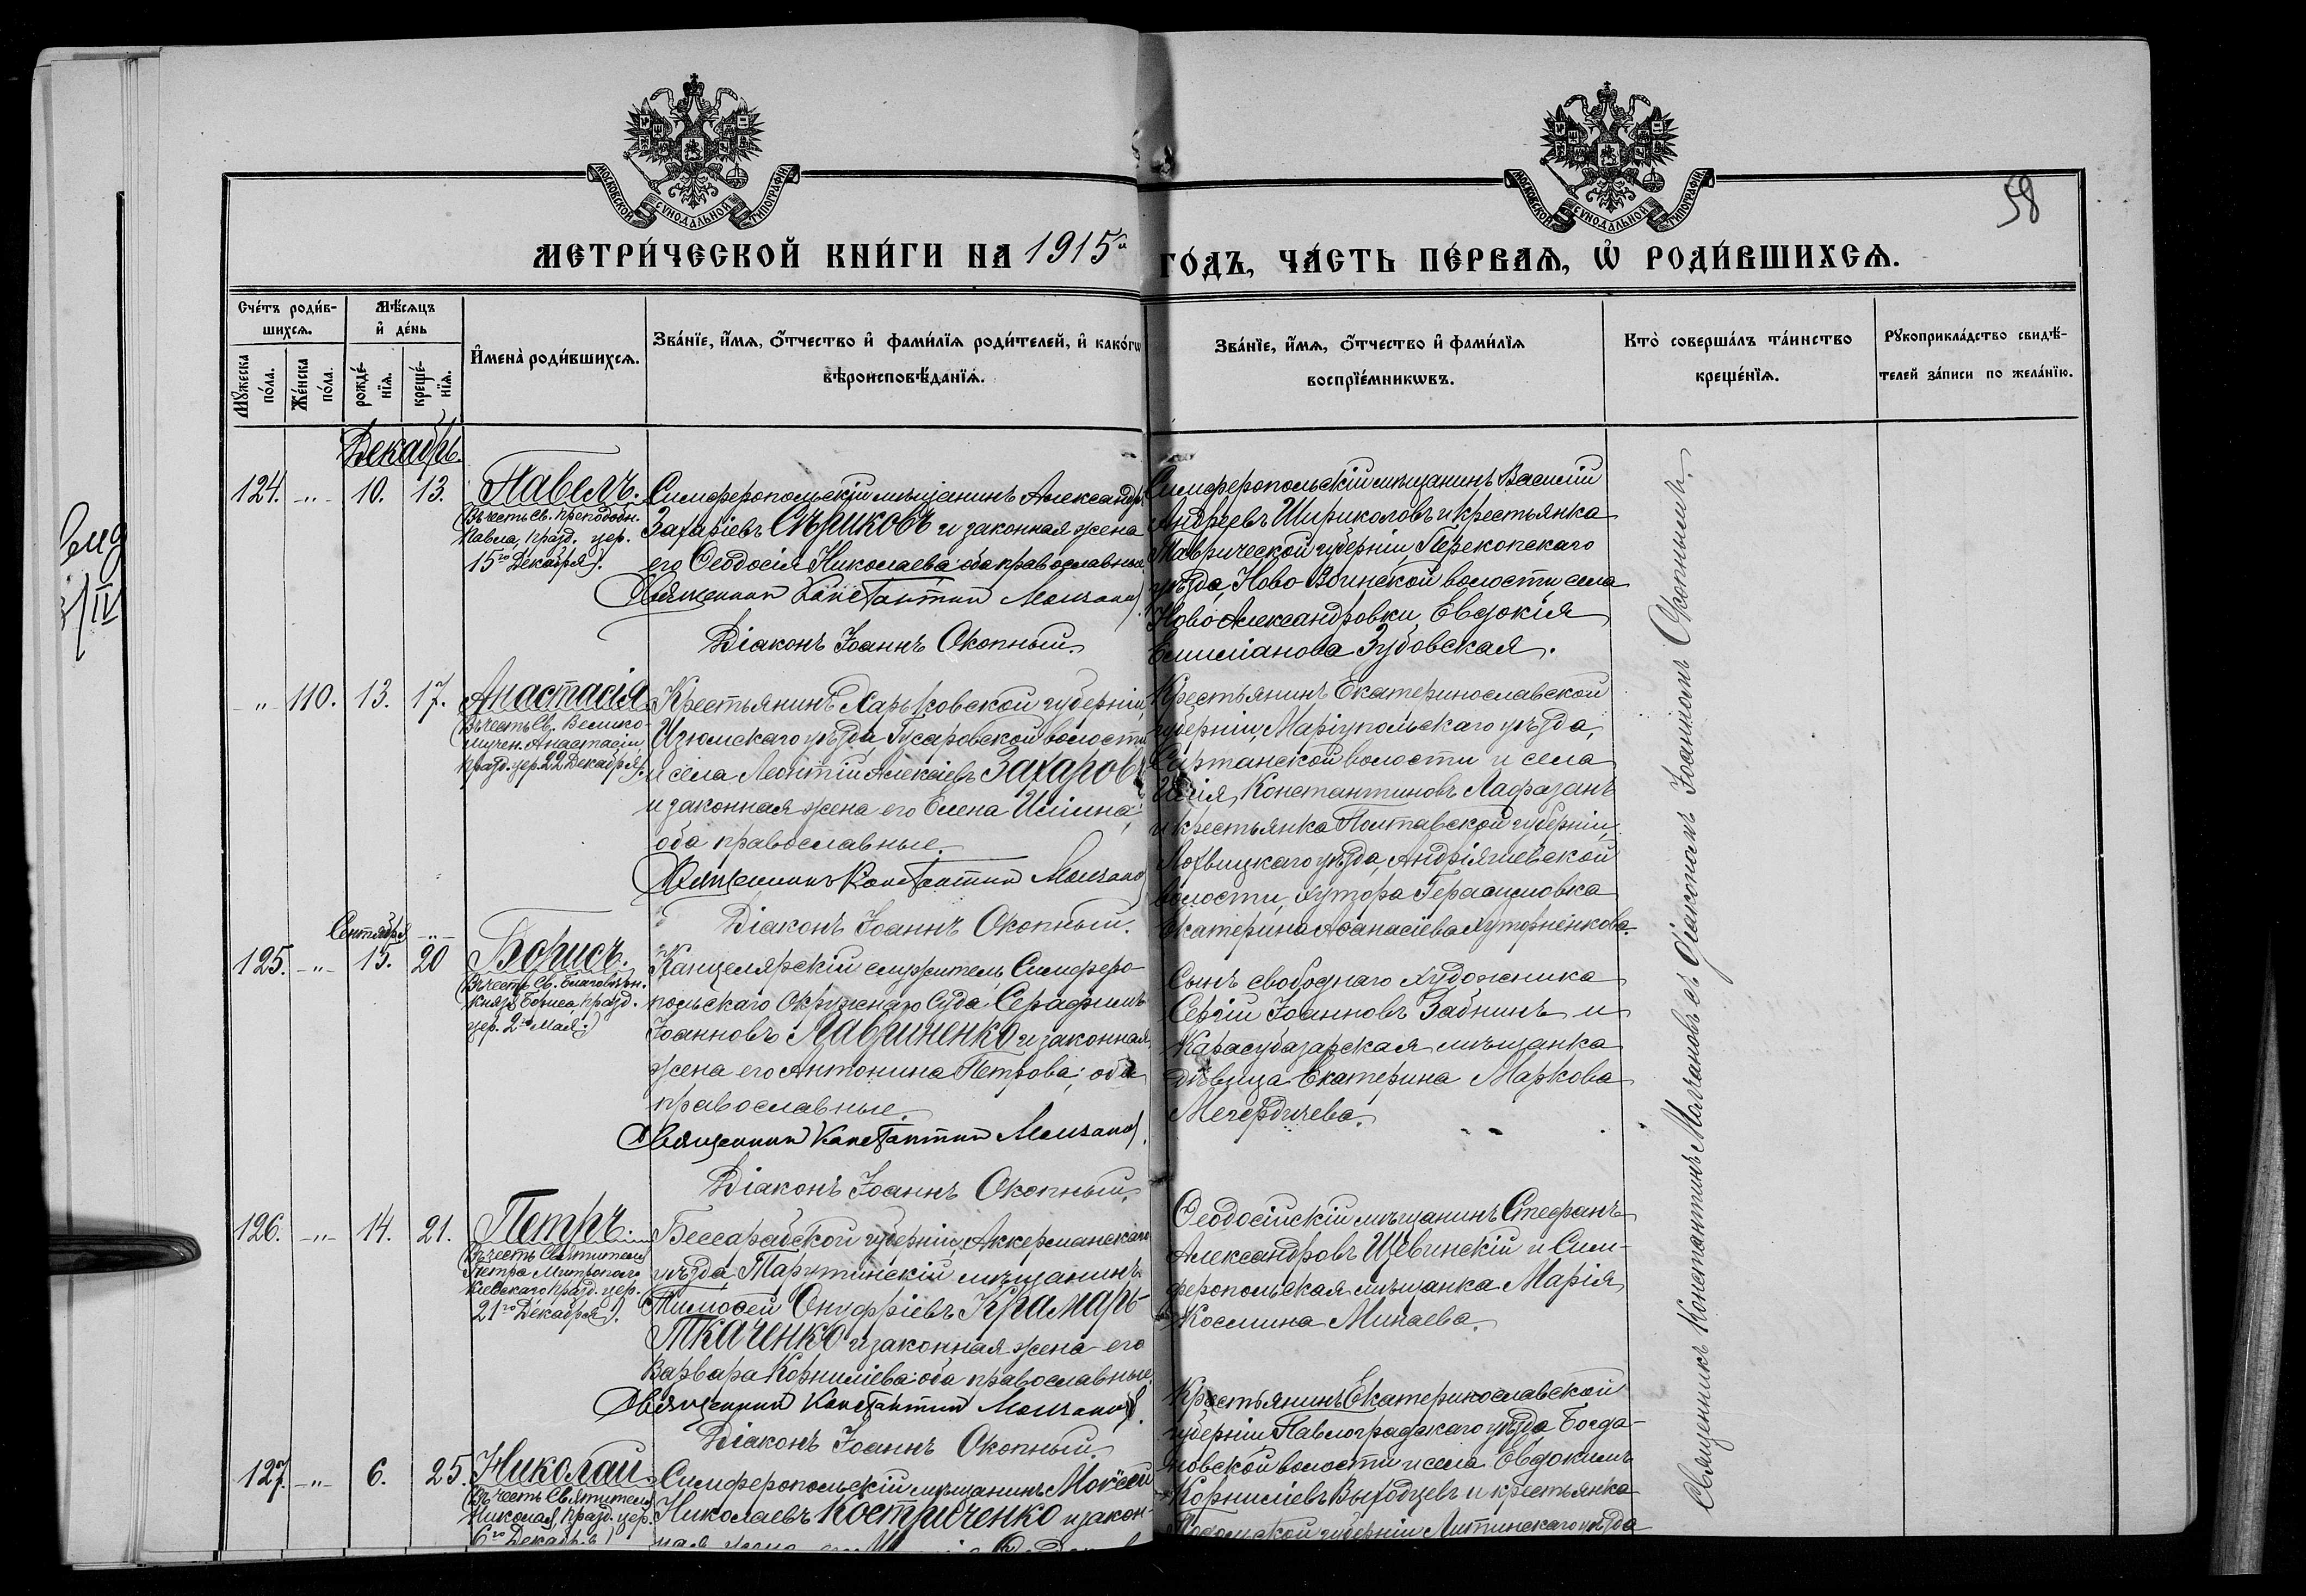 58
МОСКОВСКОЙ СУНОДАЛЬНОЙ ТИПОГРАФІИ
МОСКОВСКОЙ СУНОДАЛЬНОЙ ТИПОГРАФІИ
МЕТРИ́ЧЕСКОЙ КНИ́ГИ НА 1915й ГО́ДЪ, ЧА́СТЬ ПЕ́РВАѦ, Ѡ҆ РОДИ́ВШИХСѦ.
Сче́тъ роди́в-
шихсѧ.
Мꙋ́жеска по́ла.
Же́нска по́ла.
Мѣ́сѧцъ
и҆ де́нь
рожде́-
нїѧ.
креще́-
нїѧ.
И҆мена̀ роди́вшихсѧ.
Зва́нїе, и҆́мѧ, ѻ҆́тчество и҆ фами́лїѧ роди́телей, и҆ како́гѡ
вѣроисповѣ́данїѧ.
Зва́нїе, и҆́мѧ, ѻ҆́тчество и҆ фами́лїѧ
воспрїе́мникѡвъ.
Кто̀ соверша́лъ та́инство
креще́нїѧ.
Рꙋкоприкла́дство свидѣ́-
телей за́писи по жела́нїю.
Декабрь.
124. -"- 10. 13.
Павелъ.
(Въ честь Св. преподобн.
Павла, празд. цер.
15го Декабря).
Симферопольскій мѣщанинъ Александръ
Захаріевъ Сѣриковъ и законная жена
его Ѳеодосія Николаева оба православные
Священникъ Константинъ Молчановъ.
Діаконъ Іоаннъ Окопный.
Симферопольскій мѣщанинъ Василій
Андреевъ Шириколовъ и крестьянка
Таврической губерніи, Перекопскаго
уѣзда, Ново-Воинской волости, села
Ново Александровки, Евдокія
Емиліанова Зубовская.
" 110. 13. 17.
Анастасія.
(Въ честь Св. Велико-
мучен. Анастасіи,
празд. цер. 22 Декабря).
Крестьянинъ Харьковской губерніи,
Изюмскаго уѣзда, Гусаровской волости
и села Леонтій Алексіевъ Захаровъ
и законная жена его Елена Иліина;
оба православные.
Священникъ Константинъ Молчановъ
Діаконъ Іоаннъ Окопный.
Крестьянинъ Екатеринославской
губерніи, Маріупольскаго уѣзда,
Сартанской волости и села
Илія Константиновъ Лафазанъ
и крестьянка Полтавской губерніи,
Лохвицкаго уѣзда, Андріяшевской
волости, хутора Герасимовка
Екатерина Аѳанасіева Хуторненкова.
Сентября -"-
125. -"- 15. 20
Борисъ.
(Въ честь Св. Благовѣрн.
Князя Бориса, празд.
цер. 2го Мая.)
Канцелярскій служитель Симферо-
польскаго Окружнаго Суда Серафимъ
Іоанновъ Лавриненко и законная
жена его Антонина Петрова; оба
православные.
Священникъ Константинъ Молчановъ.
Діаконъ Іоаннъ Окопный.
Сынъ свободнаго художника
Сергій Іоанновъ Забнинъ и
Карасубазарская мѣщанка
дѣвица Екатерина Маркова
Мегердичева.
126. -"- 14. 21.
Петръ.
(Въ честь Святителя
Петра Митрополо
Кіевскаго празд. цер.
21го Декабря).
Бессарабской губерніи, Аккерманскаго
уѣзда, Тарутинскій мѣщанинъ
Тимоѳей Онуфріевъ Крамарь-
Ткаченко и законная жена его
Варвара Корниліева; оба православные.
Священникъ Константинъ Молчановъ.
Діаконъ Іоаннъ Окопный.
Ѳеодосійскій мѣщанинъ Стефанъ
Александровъ Щевинскій и Сим-
феропольская мѣщанка Марія
Космина Минаева.
127. -"- 6. 25.
Николай
(Въ честь Святителя
Николая, празд. цер.
6го Декабря)
Симферопольскій мѣщанинъ Моѵсей
Николаевъ Костриченко и закон-
ная жена его
Крестьянинъ Екатеринославской
губерніи Павлоградскаго уѣзда Богда-
новской волости и села Евдокимъ
Корниліевъ Выходцевъ и крестьянка
Подольской губерніи Литинскаго уѣзда
Священникъ Константинъ Молчановъ съ діакономъ Іоанномъ Окопнымъ.